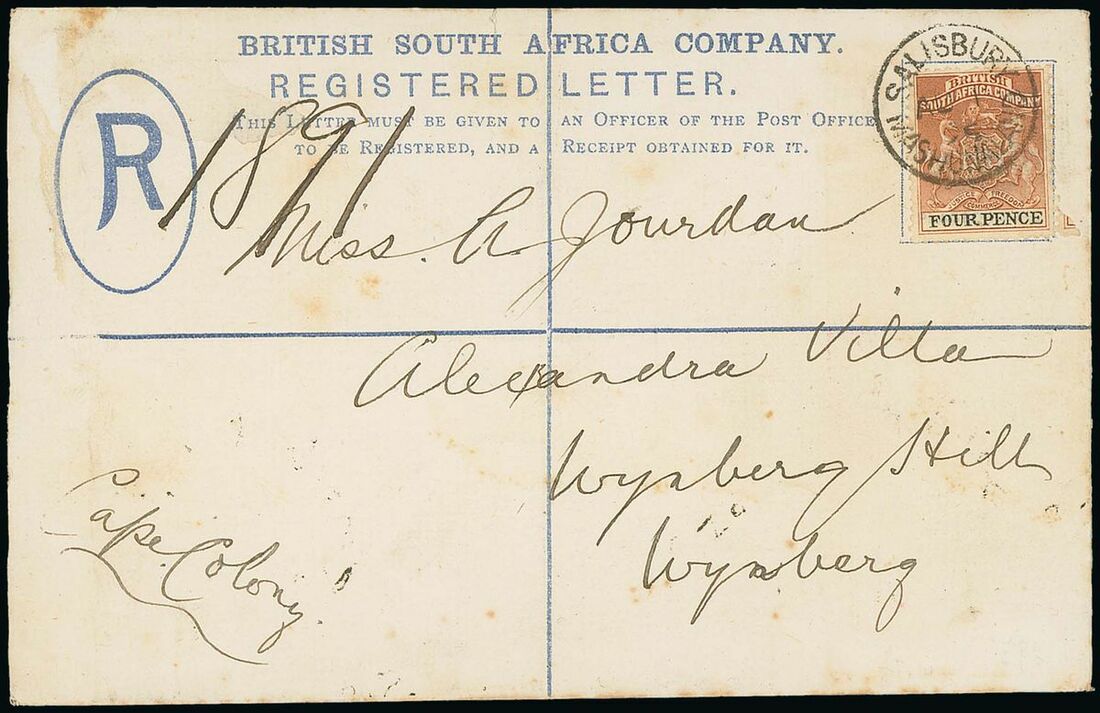 BRITISH SOUTH AFRICA COMPANY.
REGISTERED LETTER.
THIS LETTER MUST BE GIVEN TO AN OFFICER OF THE POST OFFICE
TO BE REGISTERED, AND A RECEIPT OBTAINED FOR IT.
R
1891
SALISBURY
BRITISH
SOUTH AFRICA COMPANY
JUSTICE FREEDOM
COMMERCE
FOUR PENCE
Miss. A Jourdan
Alexandra Villa
Wynberg Hill
Wynberg
Cape Colony